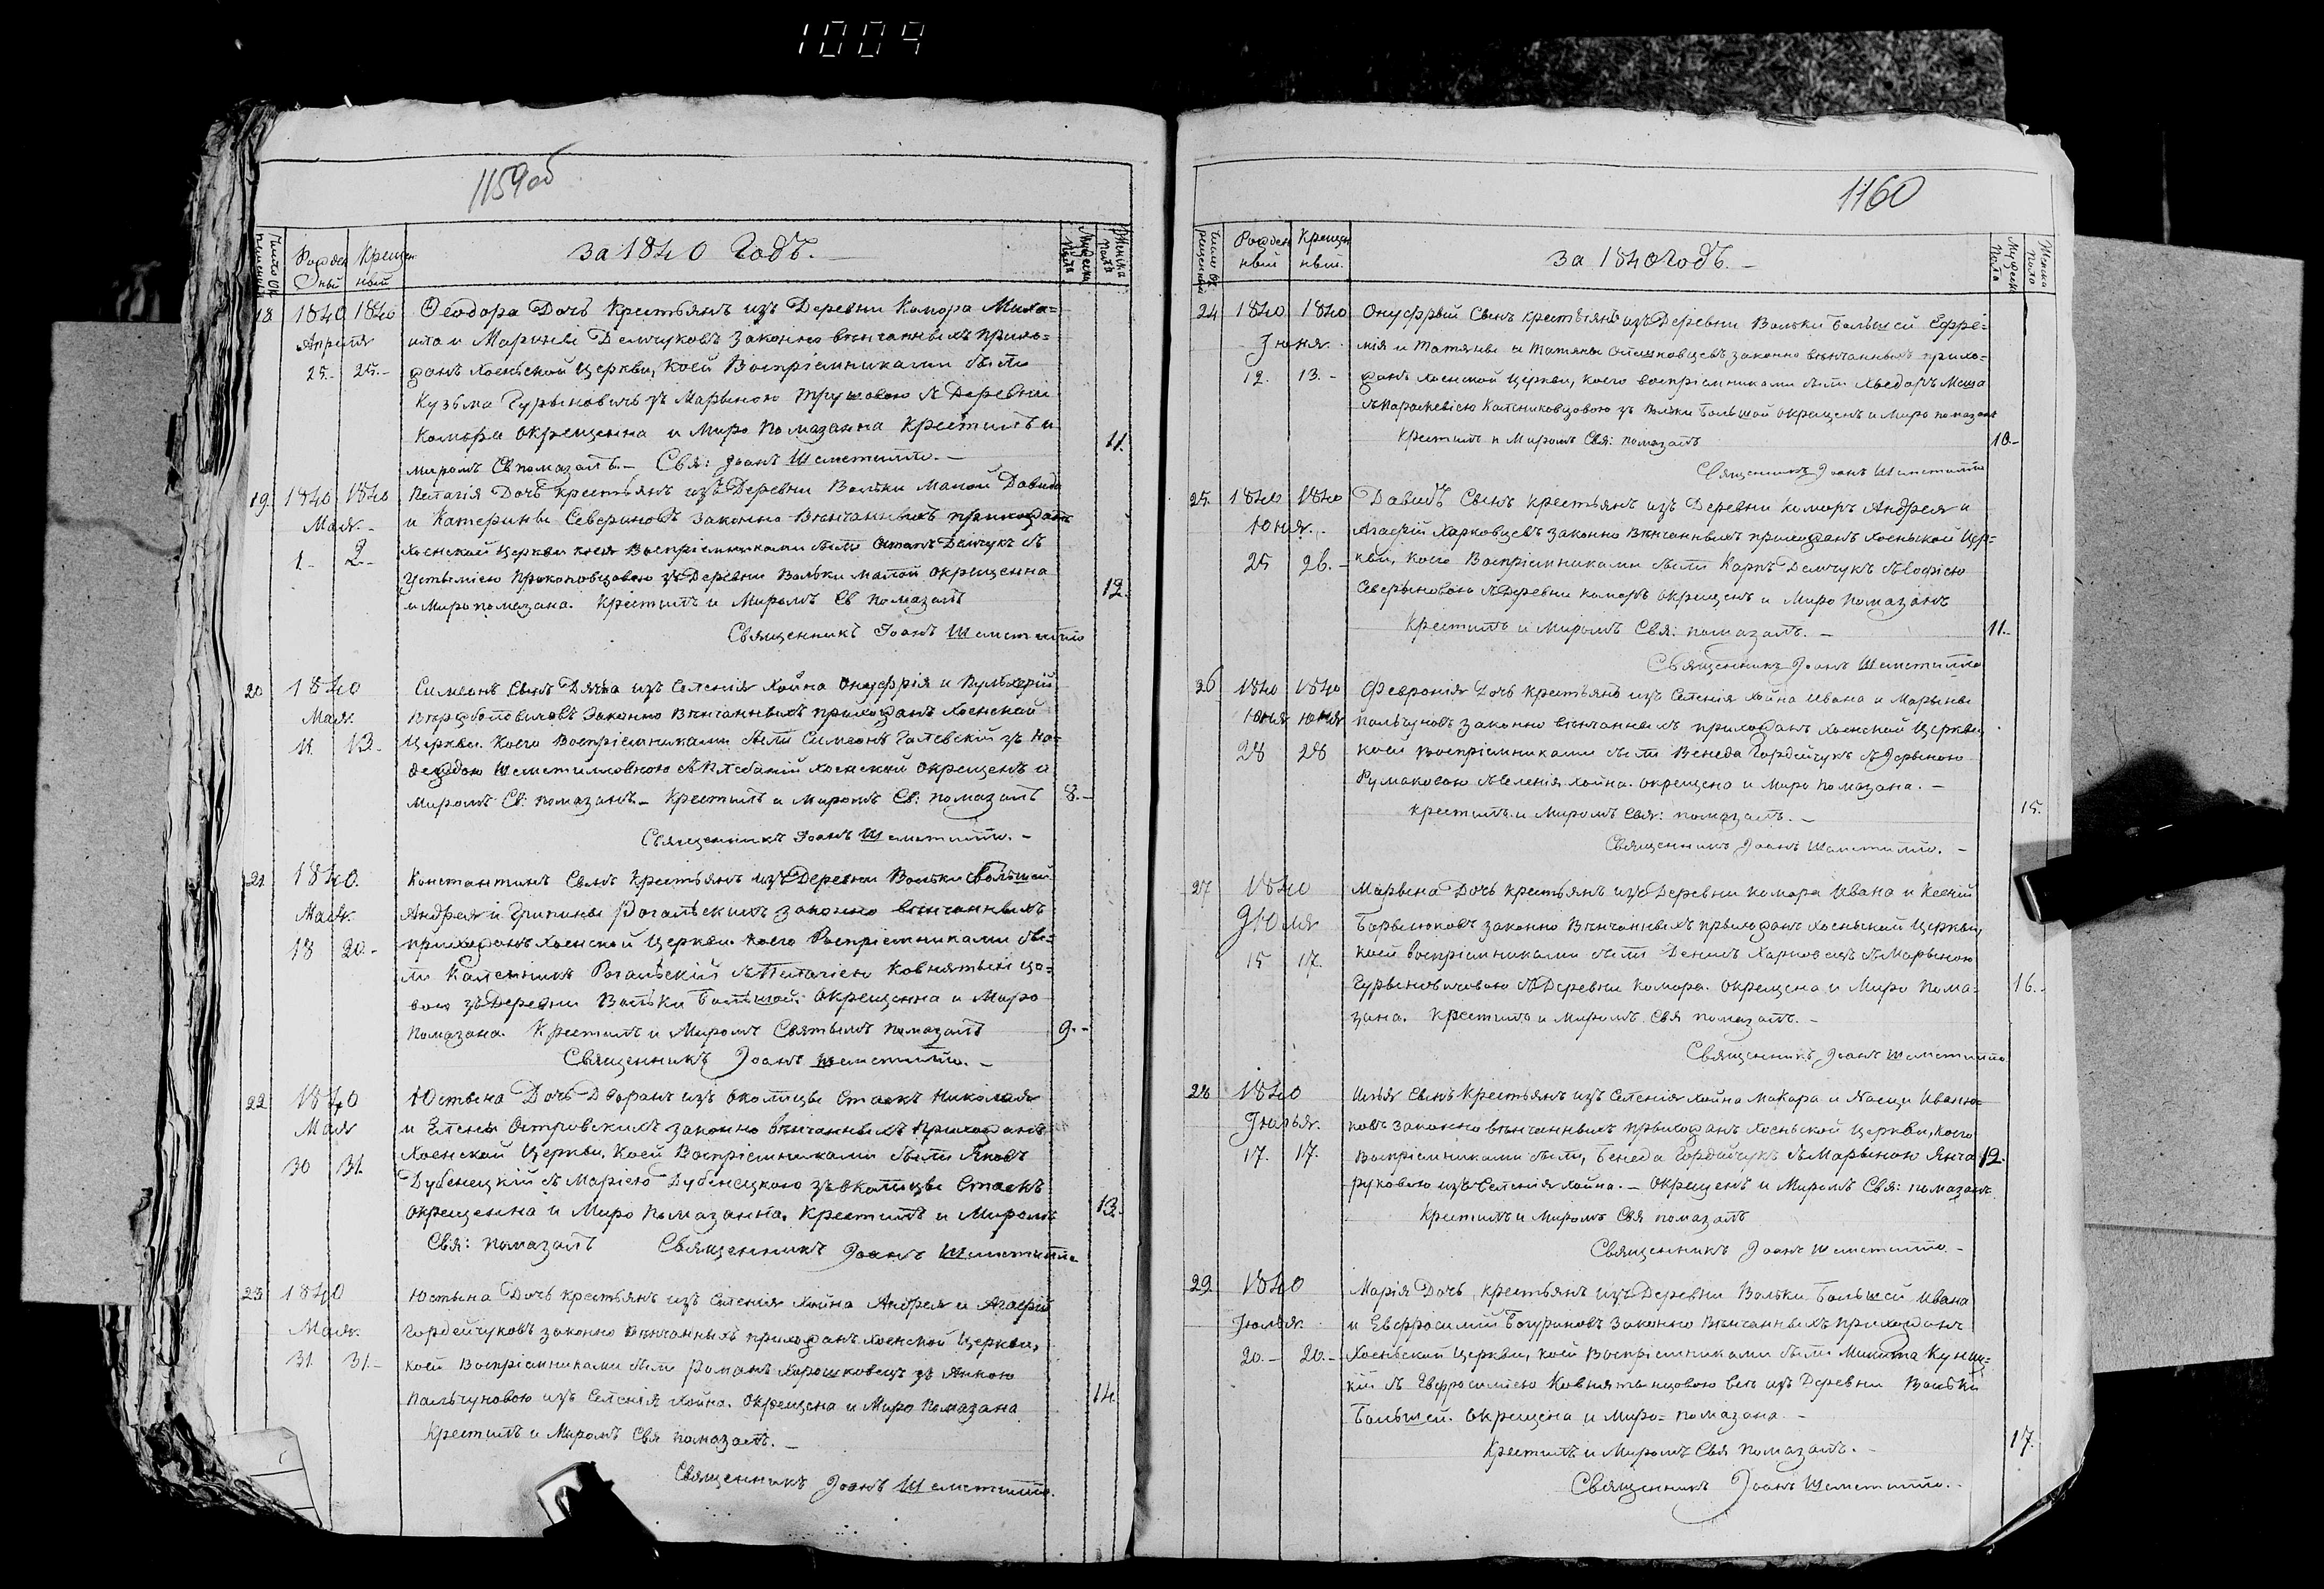 1009
1159об
Число Ок-
рещенныхъ
Рожден
ный
Крещен
ный
за 1840 Годъ. —
Мужеска
Пола
Женска
Пола
18 1840 1840 Ѳеодора Дочь Крестьянъ изъ Деревни Комора Миха=
Апреля ила и Марины Демчуковъ Законно вѣнчанныхъ прихо=
25.- 25.- жанъ Хоенской Церкви, коей Воспріемниками были
Кузьма зъ Марыною съ Деревни
Комора окрещенна и Миро Помазанна Крестилъ и 11.
миромъ Св помазалъ.- Свя: Іоанъ Шеметилло. —
19. 1840 1840 Пелагія Дочь крестьянъ изъ Деревни Вольки Малой Давида
Мая.- и Катерины Севериновъ законно Вѣнчанныхъ прихожанъ
1.- 2.- Хоенской Церкви коея Воспріемниками были Демчукъ съ
Прокоповцовою зъ Деревни Вольки малой окрещенна
и Миро помазана. Крестилъ и Миромъ Св помазалъ 12.
Священникъ Іоанъ Шеметилло
20 1840 Симеонъ Сынъ Дячка изъ Селенія Хойна Онуфрія и
Мая. законно Вѣнчанныхъ прихожанъ Хоенской
11. 13. Церкви. Коего Воспріемниками были Симеонъ зъ На=
деждою Шеметилловною съ Плебаніи Хоенской окрещенъ и
миромъ Св: помазанъ.- Крестилъ и Миромъ Св: помазалъ 8.-
Священникъ Іоанъ Шеметилло. -
21 1840. Константинъ Сынъ Крестьянъ изъ Деревни Вольки Большей
Мая. Андрея и Грипины Рогальскихъ законно вѣнчанныхъ
18 20.- прихожанъ Хоенской Церкви. коего Воспріемниками бы=
ли Рогальскій съ Пелагіею
вою зъ Деревни Вольки Большей: Окрещенна и Миро
Помазана. Крестилъ и Миромъ Святымъ Помазалъ 9.-
Священникъ Іоанъ Шеметилло. -
22 1840 Юстына Дочь Дворянъ изъ околицы Стаекъ Николая
Мая и Елены Островскихъ законно вѣнчанныхъ прихожанъ
30 31. Хоенской Церкви, Коей Воспріемниками были Яковъ
Дубенецкій съ Маріею Дубенецкою зъ околицы Стаекъ
окрещенна и Миро Помазанна. Крестилъ и Миромъ 13.
Свя: помазалъ Священникъ Іоанъ Шеметилло
23 1840 Юстына Дочь крестьянъ изъ Селенія Хойна Андрея и Агафіи
Мая. Гордейчуковъ законно вѣнчанныхъ прихожанъ Хоенской Церкви,
31. 31.- коей Воспріемниками были Романъ Хорошковецъ зъ Анною
Пальчуновою изъ Селенія Хойна. окрещена и Миро Помазана 14.
Крестилъ и Миромъ Свя помазалъ. -
Священникъ Іоанъ Шеметилло.
1160
Число Ок-
рещенныхъ
Рожден
ный
Крещен
ный.
за 1840 Годъ. -
Мужеска
Пола
Женска
Пола
24 1840 1840 Онуфрый Сынъ крестьянъ изъ Деревни Вольки Большей Ефре=
Іюня. мія и Татяны и Татяны законно вѣнчанныхъ прихо=
12. 13.- жанъ Хоенской Церкви, коего воспріемниками были
съ Параскевіею зъ Вольки Большой окрещенъ и Миро помазанъ
Крестилъ и Миромъ Свя: помазалъ 10.-
Священникъ Іоанъ Шеметилло
25. 1840 1840 Давидъ Сынъ крестьянъ изъ Деревни Коморъ Андрея и
Юния.- Агафіи Харковцевъ законно Вѣнчанныхъ прихожанъ Хоеньской Цер=
25 26.- кви, Коего Воспріемниками были Карпъ Демчукъ съ Софіею
Северыновою съ Деревни Коморъ окрещенъ и Миро Помазанъ
Крестилъ и Миромъ Свя: помазалъ. - 11.-
Священникъ Іоанъ Шеметилло
26 1840 1840 Февронія Дочь крестьянъ изъ Селенія Хойна Ивана и Марыны
Юния Юния Пальчуновъ законно вѣнчанныхъ прихожанъ Хоенской Церкви,
28 28 коей воспріемниками были Бенеда Гордейчукъ съ
съ Селенія Хойна. окрещена и Миро помазана. -
крестилъ и Миромъ Свя: помазалъ. - 15.
Священникъ Іоанъ Шеметилло. -
27 1840 Марына Дочь крестьянъ изъ Деревни Комора Ивана и Ксеніи
Июля законно Вѣнчанныхъ прыхожанъ Хоеньской Церкви,
15 17. коей воспріемниками были Денисъ Харковецъ съ Марыною
съ Деревни Комора. окрещена и Миро пома- 16.-
зана. Крестилъ и Миромъ Свя помазалъ. -
Священникъ Іоанъ Шеметилло
28 1840 Илья Сынъ Крестьянъ изъ Селенія Хойна Макара и Иваню=
Іюлья. ковъ законно вѣнчанныхъ прыхожанъ Хоеньской Церкви, коего
17. 17. Воспріемниками были, Бенеда Гордейчукъ съ Марыною Янча 12.
руковою изъ Селенія Хойна. - Окрещенъ и Миромъ Свя: помазанъ.
Крестилъ и Миромъ Свя помазалъ
Священникъ Іоанъ Шеметилло. -
29 1840 Марія Дочь, крестьянъ изъ Деревни Вольки Большей Ивана
Іюлья. и Евфросиміи законно Вѣнчанныхъ Прихожанъ
20.- 20.- Хоеньской Церкви, коей Воспріемниками были Микита Куниц=
кій съ Евфросиміею вси изъ Деревни Вольки
Большей. Окрещена и Миро= помазана. -
Крестилъ и Миромъ Свя помазалъ. - 17.
Священникъ Іоанъ Шеметилло. -